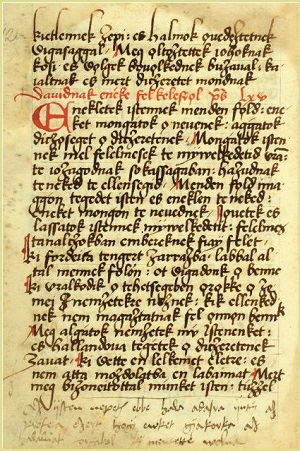 kietlennek zepi: es halmok ouedeztetnek
vigasaggal Meg oltoztettek iohoknak
kosi: es volgek bouolkednek buzaual: ka
ialtnak es mert dicheretet mondnak
dauidnak eneke fel keleserol ps lxv
Enekletek istennek menden fold: ene
ket mongatok o neuenek: aggatok
dichoseget o dicheretenek Mongatok isten
nek mel felelmesek te mywelkedetid vra
te iozagodnak sokassagaban: hazudnak
teneked te ellensegid Menden fold ima
ggon tegedet isten es enekelen teneked:
eneket mongon te neuednek Iouetek es
lassatok istennek mywelkedetit: felelmes
tanalchokban embereknek fiay felet
ki fordeita tengert zarrazba labbal al
tal mennek folion: ot vigadonk o benne
ki vralkodik o tehetsegeben orokke o ze
mei nemzetekre neznek: kik ellenked
nek nem magaztatnak fel onnon bennek
Meg algatok nemzetek my istenenket:
es hallandoua tegetek o dicheretenek
zauat ki vette en lelkemet eletre: es
nem atta mozdolatba en labaimat Mert
meg bizoneitottal minket isten: tuzzel
isten nepet ebbe